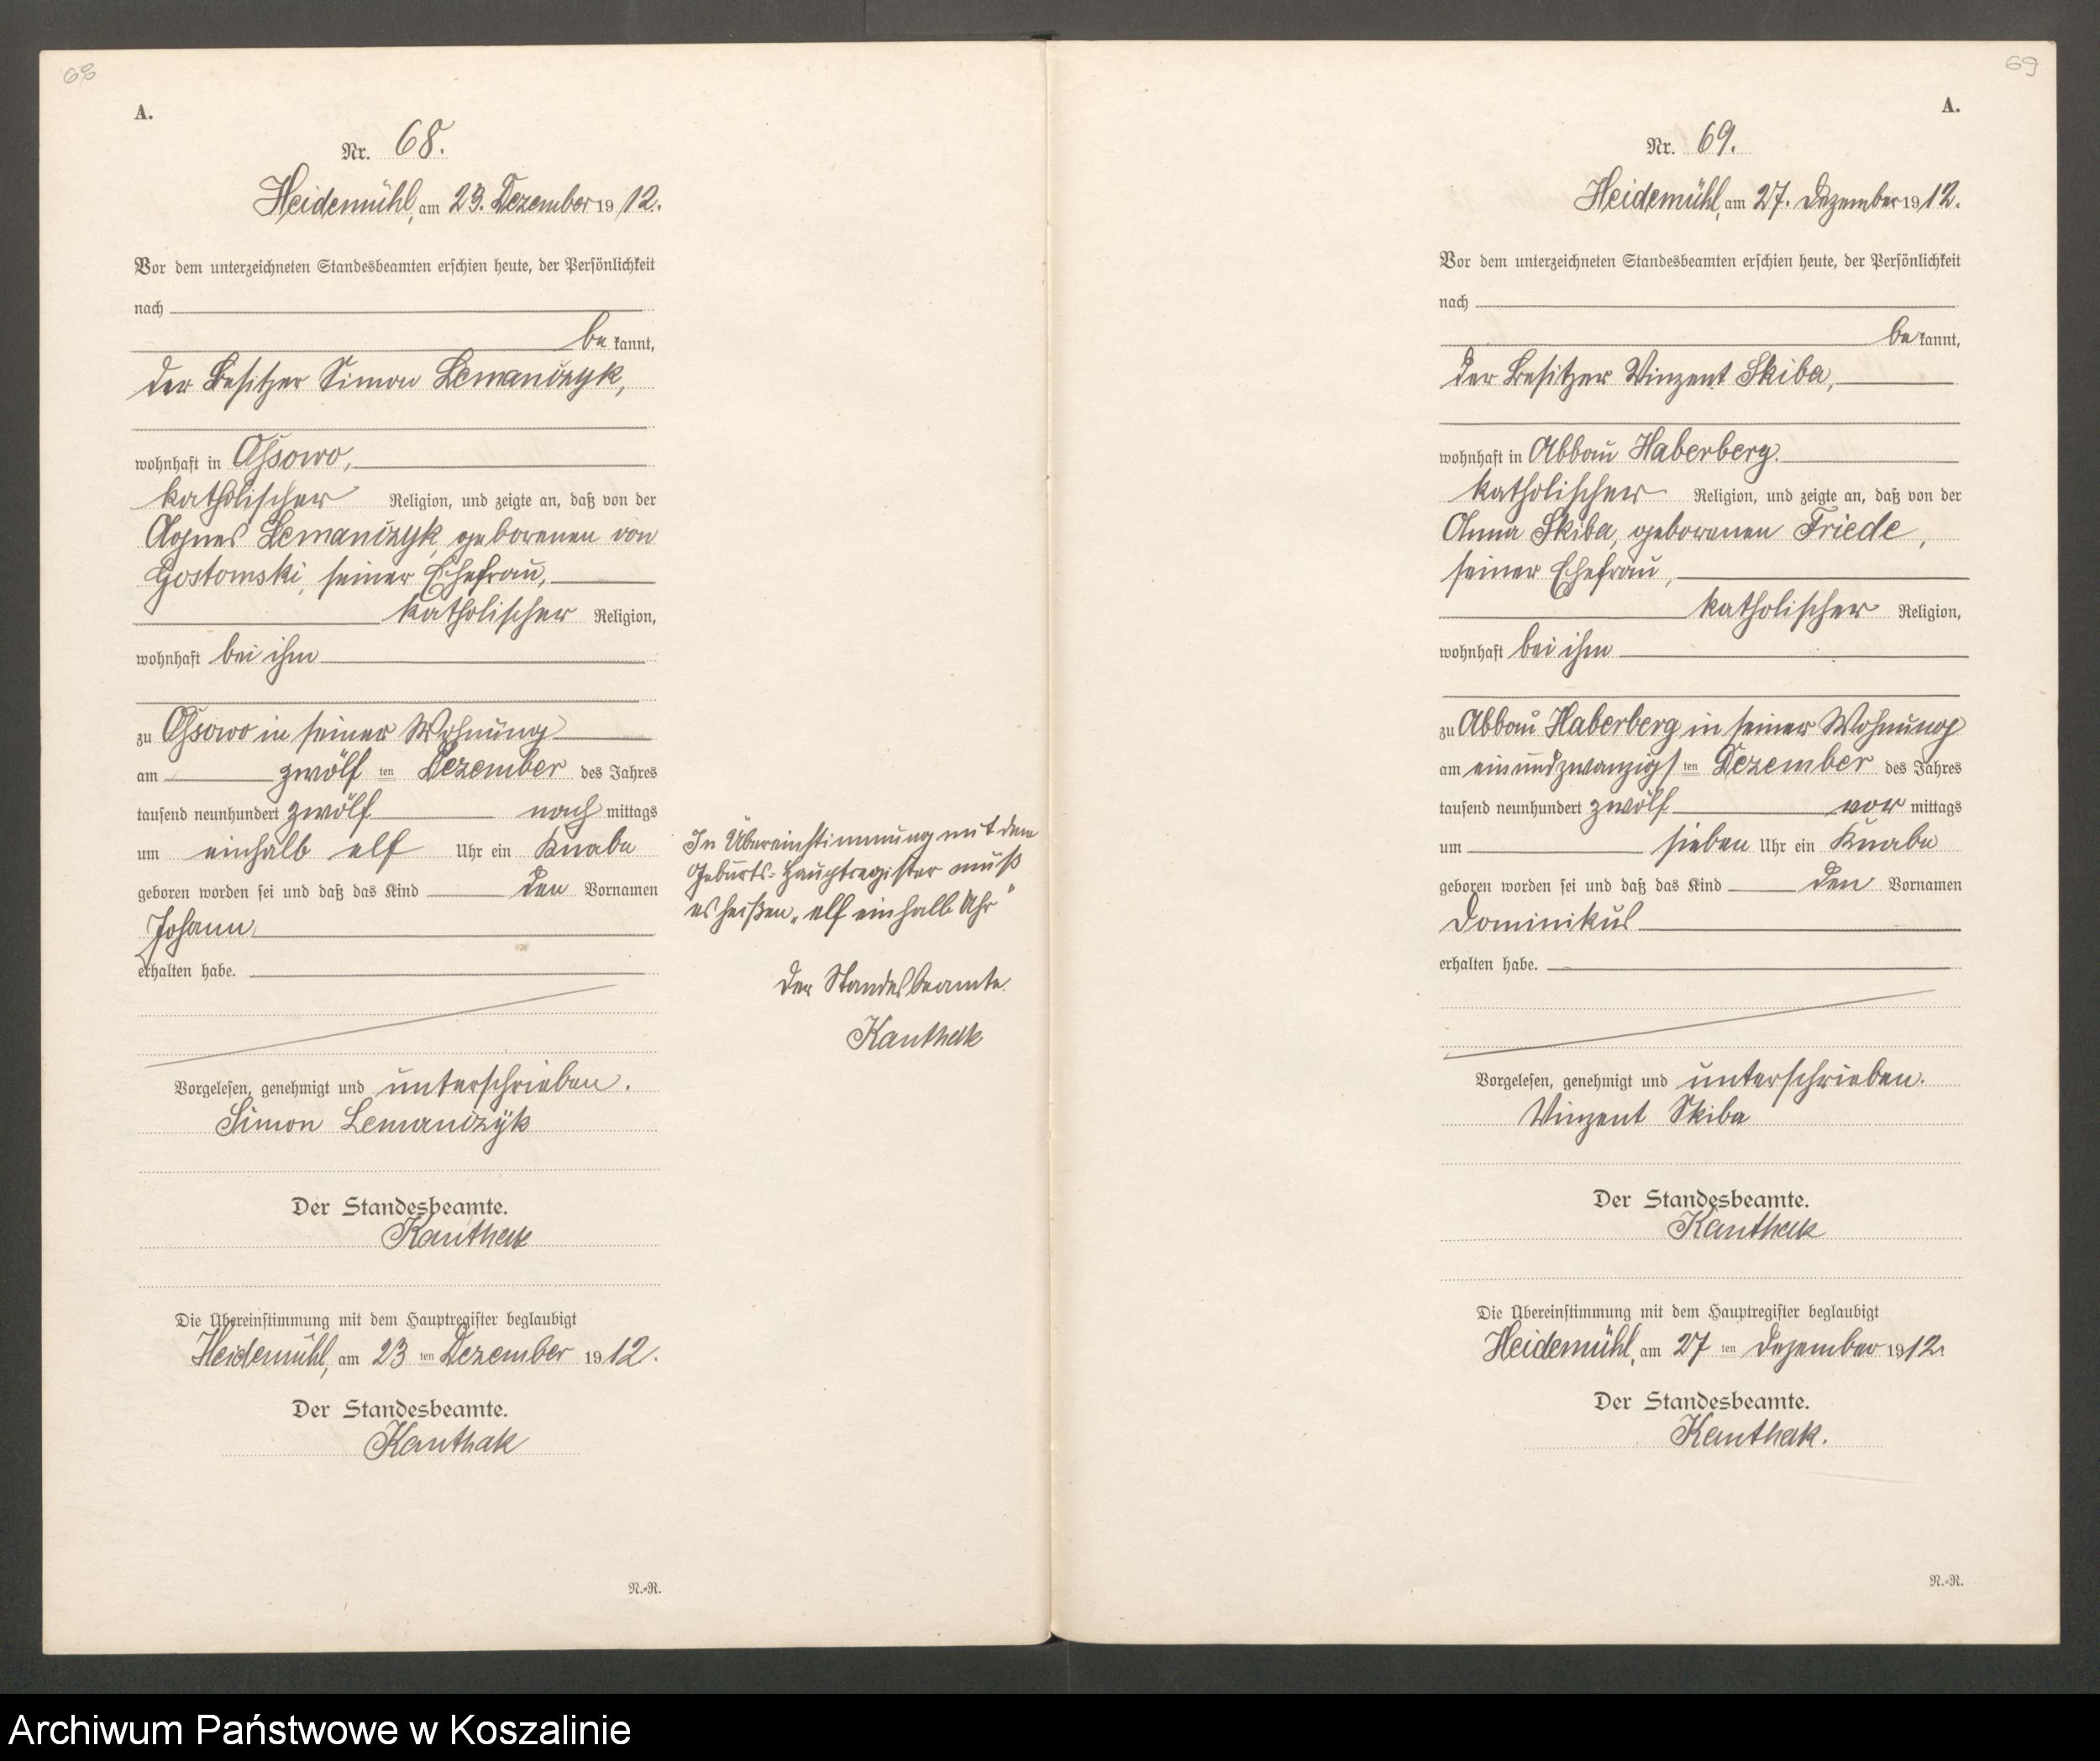 68
A.
Nr. 68.
Heidemühl, am 23. Dezember 19 12.
Vor dem unterzeichneten Standesbeamten erschien heute, der Persönlichkeit
nach
be kannt,
der Besitzer Simon Lemańczyk,
wohnhaft in Ossowo,
katholischer Religion, und zeigte an, daß von der
Agnes Lemańczyk, geborenen von
Gostomski, seiner Ehefrau,
katholischer Religion,
wohnhaft bei ihm
zu Ossowo in seiner Wohnung
am zwölf ten Dezember des Jahres
tausend neunhundert zwölf nach mittags
um einhalb elf Uhr ein Knabe
geboren worden sei und daß das Kind den Vornamen
Johann
erhalten habe.
Vorgelesen, genehmigt und unterschrieben.
Simon Lemańczyk
Der Standesbeamte.
Kanthak
Die Übereinstimmung mit dem Hauptregister beglaubigt
Heidemühl, am 23 ten Dezember 19 12.
Der Standesbeamte.
Kanthak
N.-R.
In Übereinstimmung mit dem
Geburts-Hauptregister muß
es heißen „elf einhalb Uhr"
Der Standesbeamte.
Kanthak
69
A.
Nr. 69.
Heidemühl, am 27. Dezember 19 12.
Vor dem unterzeichneten Standesbeamten erschien heute, der Persönlichkeit
nach
be kannt,
der Besitzer Vinzent Skiba,
wohnhaft in Abbau Haberberg.
katholischer Religion, und zeigte an, daß von der
Anna Skiba, geborenen Friede,
seiner Ehefrau,
katholischer Religion,
wohnhaft bei ihm
zu Abbau Haberberg in seiner Wohnung
am einundzwanzigs ten Dezember des Jahres
tausend neunhundert zwölf vor mittags
um sieben Uhr ein Knabe
geboren worden sei und daß das Kind den Vornamen
Dominikus
erhalten habe.
Vorgelesen, genehmigt und unterschrieben.
Vinzent Skiba
Der Standesbeamte.
Kanthak
Die Übereinstimmung mit dem Hauptregister beglaubigt
Heidemühl, am 27 ten Dezember 19 12.
Der Standesbeamte.
Kanthak.
N.-R.
Archiwum Państwowe w Koszalinie